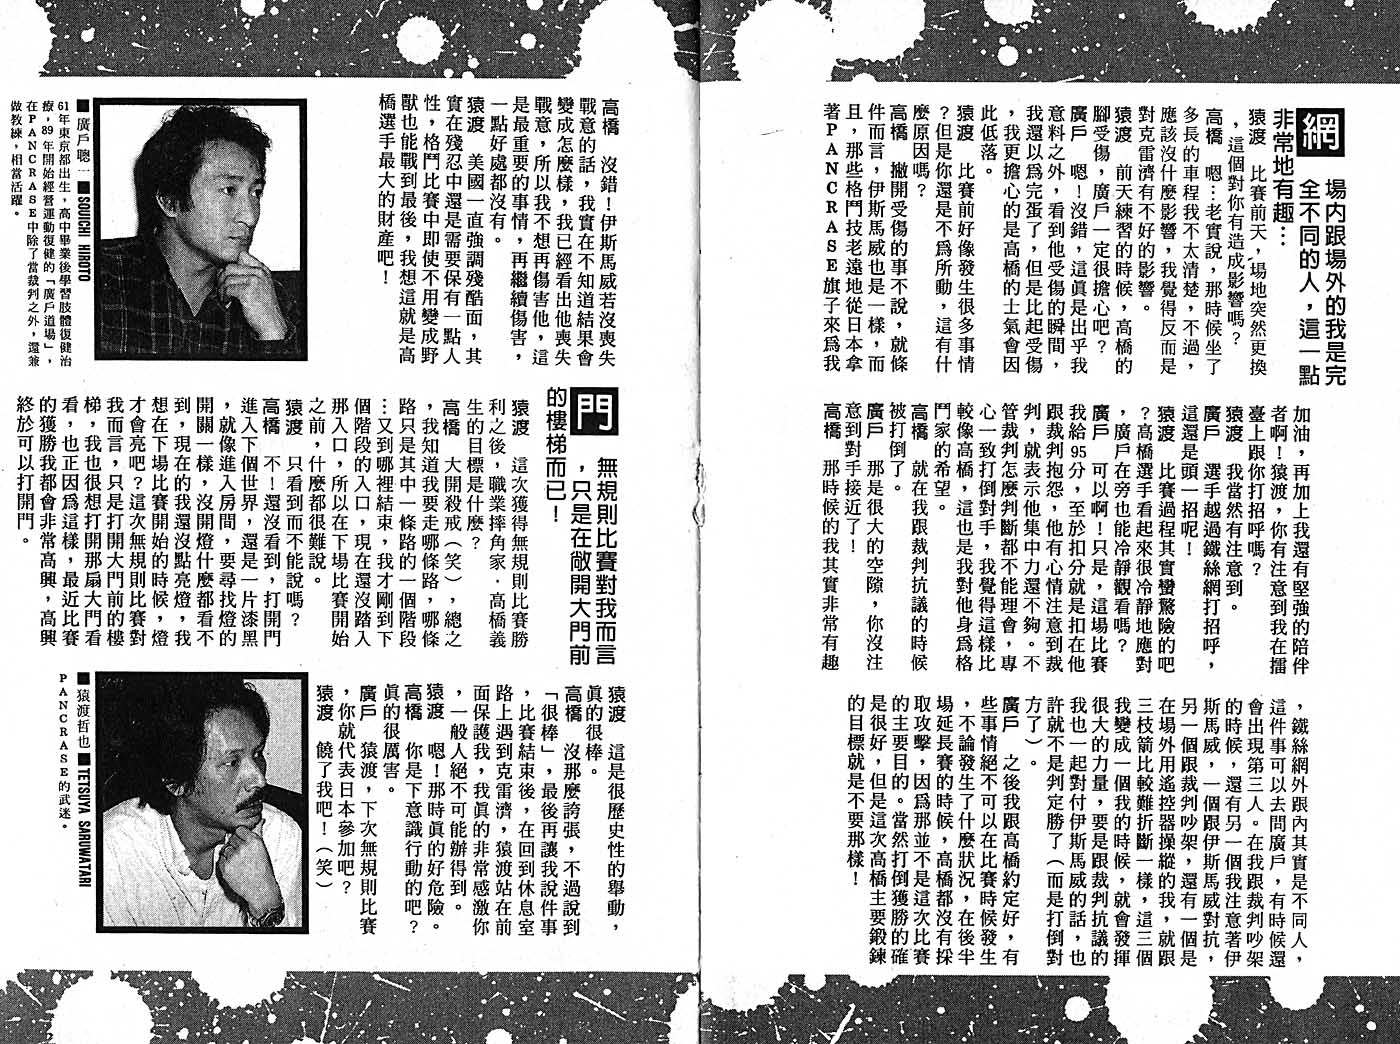 網
場內跟場外的我是完
全不同的人，這一點
非常地有趣…
猿渡　比賽前天，場地突然更換
，這個對你有造成影響嗎？
高橋　嗯…老實說，那時候坐了
多長的車程我不太清楚，不過，
應該沒什麼影響，我覺得反而是
對克雷濟有不好的影響。
猿渡　前天練習的時候，高橋的
腳受傷，廣戶一定很擔心吧？
廣戶　嗯！沒錯，這真是出乎我
意料之外，看到他受傷的瞬間，
我還以爲完蛋了，但是比起受傷
，我更擔心的是高橋的士氣會因
此低落。
猿渡　比賽前好像發生很多事情
？但是你還是不爲所動，這有什
麼原因嗎？
高橋　撇開受傷的事不說，就條
件而言，伊斯馬威也是一樣，而
且，那些格鬥技老遠地從日本拿
著PANCRASE旗子來爲我
加油，再加上我還有堅強的陪伴
者啊！猿渡，你有注意到我在擂
臺上跟你打招呼嗎？
猿渡　我當然有注意到。
廣戶　選手越過鐵絲網打招呼，
這還是頭一招呢！
猿渡　比賽過程其實蠻驚險的吧
？高橋選手看起來很冷靜地應對
，廣戶在旁也能冷靜觀看嗎？
廣戶　可以啊！只是，這場比賽
我給95分，至於扣分就是扣在他
跟裁判抱怨，他有心情注意到裁
判，就表示他集中力還不夠。不
管裁判怎麼判斷都不能理會，專
心一致打倒對手，我覺得這樣比
較像高橋，這也是我對他身爲格
鬥家的希望。
高橋　就在我跟裁判抗議的時候
被打倒了。
廣戶　那是很大的空隙，你沒注
意到對手接近了！
高橋　那時候的我其實非常有趣
，鐵絲網外跟內其實是不同人，
這件事可以去問廣戶，有時候還
會出現第三人。在我跟裁判吵架
的時候，還有另一個我注意著伊
斯馬威，一個跟伊斯馬威對抗，
另一個跟裁判吵架，還有一個是
在場外用遙控器操縱的我，就跟
三枝箭比較難折斷一樣，這三個
我變成一個我的時候，就會發揮
很大的力量，要是跟裁判抗議的
我也一起對付伊斯馬威的話，也
許就不是判定勝了（而是打倒對
方了）。
廣戶　之後我跟高橋約定好，有
些事情絕不可以在比賽時候發生
，不論發生了什麼狀況，在後半
場延長賽的時候，高橋都沒有採
取攻擊，因爲那並不是這次比賽
的主要目的。當然打倒獲勝的確
是很好，但是這次高橋主要鍛鍊
的目標就是不要那樣！
高橋　沒錯！伊斯馬威若沒喪失
戰意的話，我實在不知道結果會
變成怎麼樣，我已經看出他喪失
戰意，所以我不想再傷害他，這
是最重要的事情，再繼續傷害，
一點好處都沒有。
猿渡　美國一直強調殘酷面，其
實在殘忍中還是需要保有一點人
性，格鬥比賽中即使不用變成野
獸也能戰到最後，我想這就是高
橋選手最大的財產吧！
■廣戶聰一■SOUICHI HIROTO
61年東京都出生，高中畢業後學習肢體復健治
療，89年開始經營運動復健的「廣戶道場」，
在PANCRASE中除了當裁判之外，還兼
做教練，相當活躍。
門
無規則比賽對我而言
，只是在敞開大門前
的樓梯而已！
猿渡　這次獲得無規則比賽勝
利之後，職業摔角家．高橋義
生的目標是什麼？
高橋　大開殺戒（笑），總之
，我知道我要走哪條路，哪條
路只是其中一條路的一個階段
…又到哪裡結束，我才剛到下
個階段的入口，現在還沒踏入
那入口，所以在下場比賽開始
之前，什麼都很難說。
猿渡　只看到而不能說嗎？
高橋　不！還沒看到，打開門
進入下個世界，還是一片漆黑
，就像進入房間，要尋找燈的
開關一樣，沒開燈什麼都看不
到，現在的我還沒點亮燈，我
想在下場比賽開始的時候，燈
才會亮吧？這次無規則比賽對
我而言，只是打開大門前的樓
梯，我也很想打開那扇大門看
看，也正因爲這樣，最近比賽
的獲勝我都會非常高興，高興
終於可以打開門。
猿渡　這是很歷史性的舉動，
真的很棒。
高橋　沒那麼誇張，不過說到
「很棒」，最後再讓我說件事
，比賽結束後，在回到休息室
路上遇到克雷濟，猿渡站在前
面保護我，我真的非常感激你
，一般人絕不可能辦得到。
猿渡　嗯！那時真的好危險。
高橋　你是下意識行動的吧？
真的很厲害。
廣戶　猿渡，下次無規則比賽
，你就代表日本參加吧？
猿渡　饒了我吧！（笑）
■猿渡哲也■TETSUYA SARUWATARI
PANCRASE的武迷。